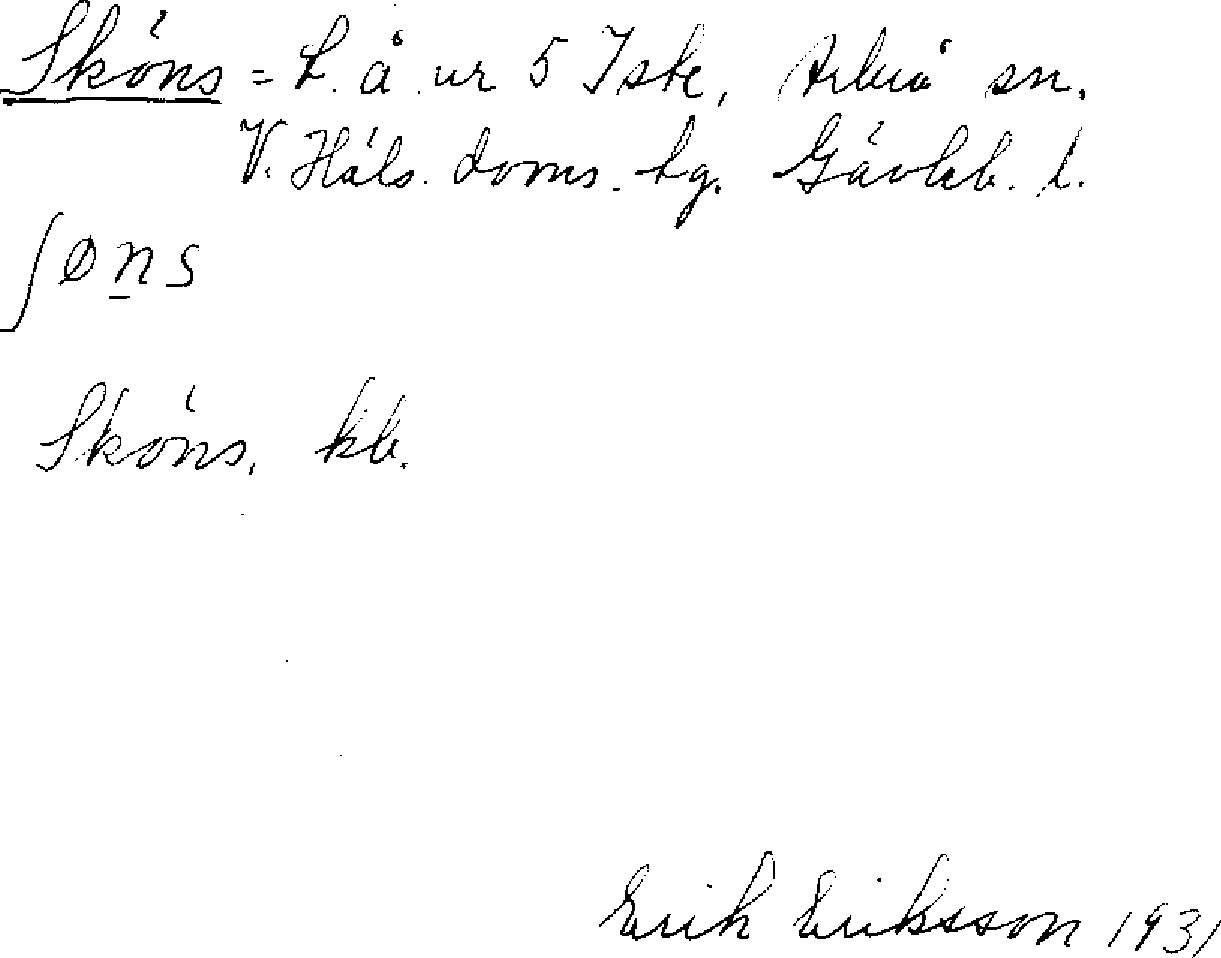 Sköns = L. å ur 5 Iste, Arbrå sn.
V. Häls. doms. tg. Gävleb. l.
ʃøn̲s
Sköns, kb.
Erik Eriksson 1931